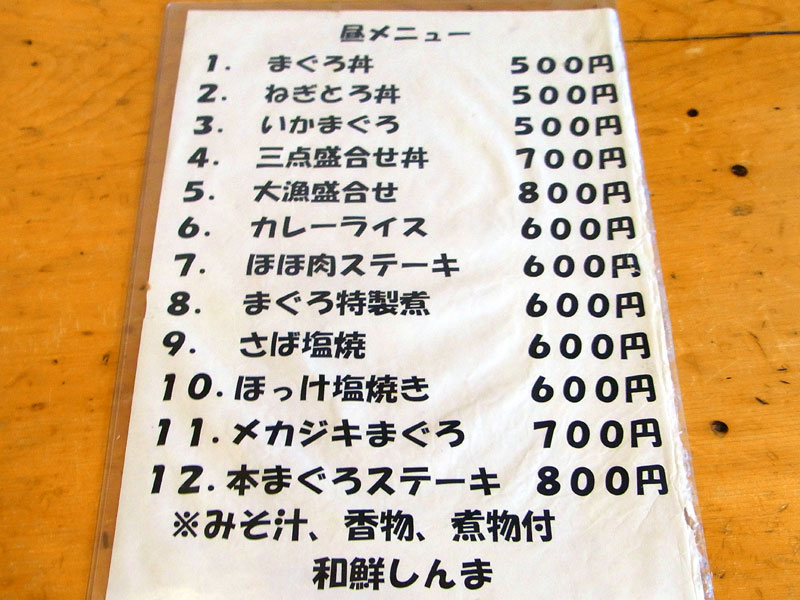 昼メニュー
１． まぐろ丼 ５００円
２． ねぎとろ丼 ５００円
３． いかまぐろ ５００円
４． 三点盛合せ丼 ７００円
５． 大漁盛合せ ８００円
６． カレーライス ６００円
７． ほほ肉ステーキ ６００円
８． まぐろ特製煮 ６００円
９． さば塩焼 ６００円
１０．ほっけ塩焼き ６００円
１１．メカジキまぐろ ７００円
１２．本まぐろステーキ ８００円
※みそ汁、香物、煮物付
和鮮しんま